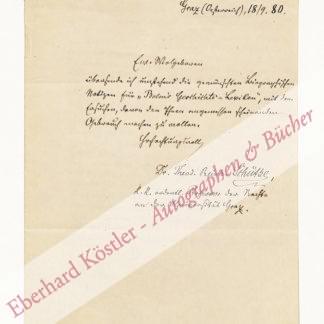 Graz (Oesterreich), 18/9. 80.
Ew. Wolgeboren
übersende ich umstehend die gewünschten biographischen
Notizen für "Lexikon", mit dem
Ersuchen, davon den Ihnen angemessen scheinenden
Gebrauch machen zu wollen.
Hochachtungsvoll,
Dr. Theod. Schütze,
k.k. ordentl. Professor der Rechte
an der Universität Graz.
Eberhard Köstler - Autographen & Bücher